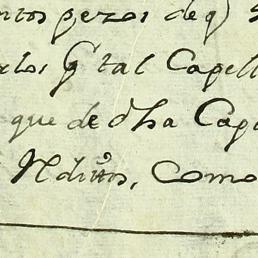 ntos pezos de q)
rlos Gl tal Capell
que de dha Cap
Nditos, Como